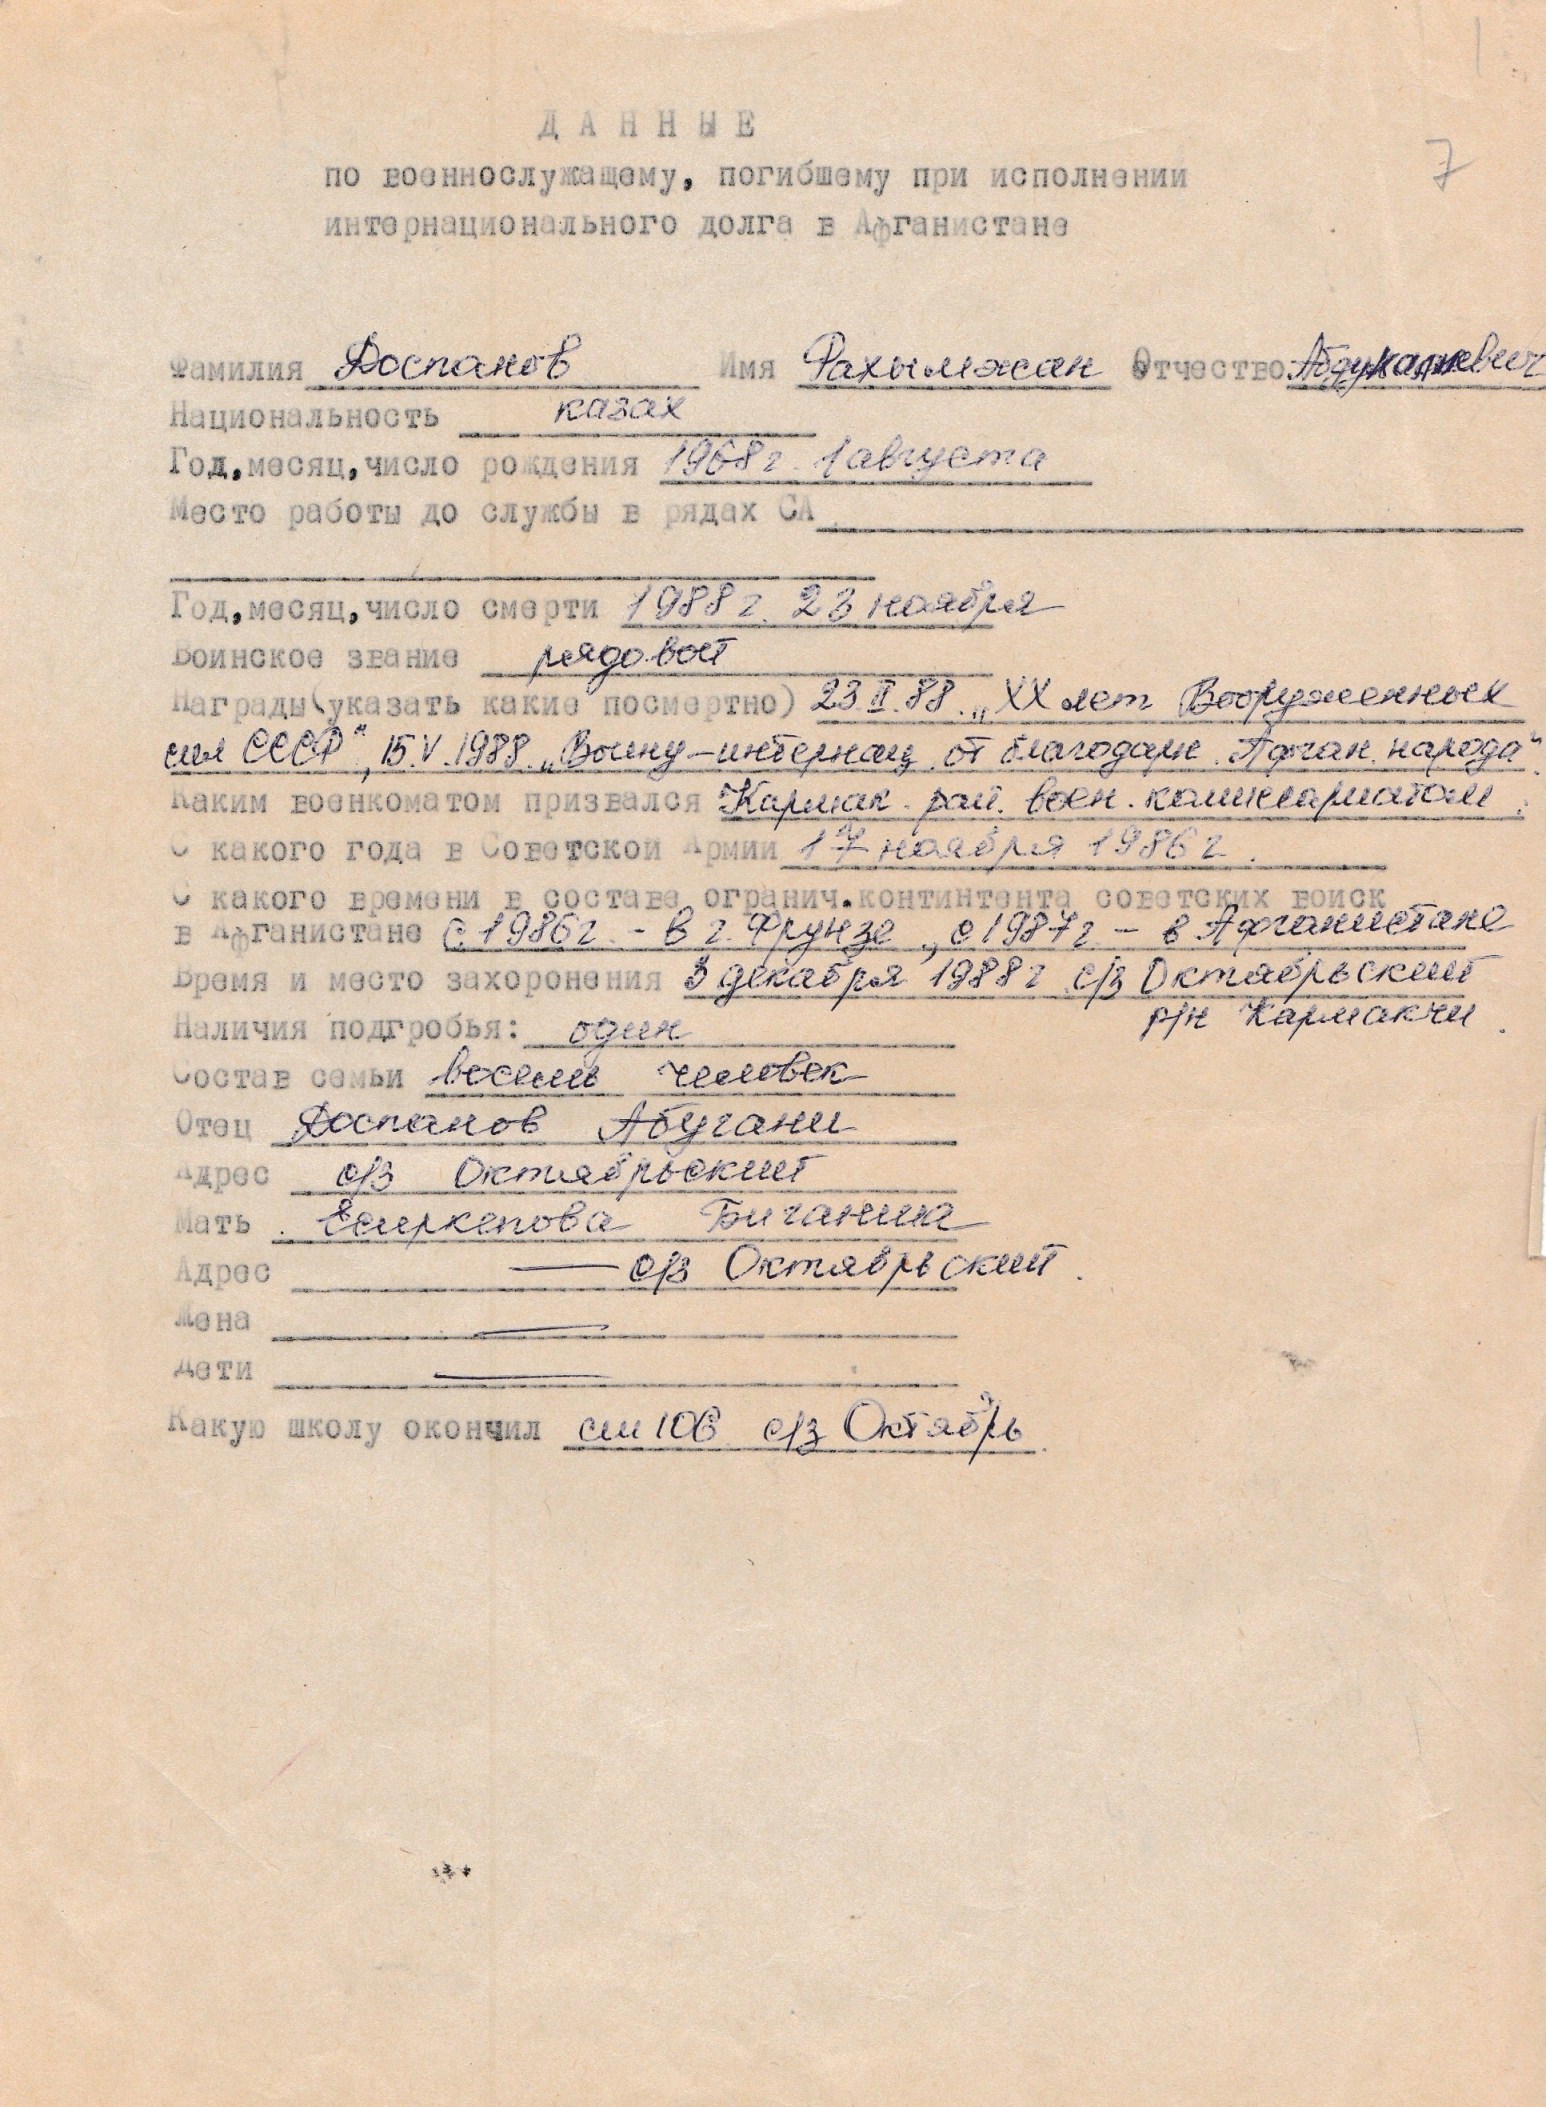 7
Д А Н Н Ы Е
по военнослужащему, погибшему при исполнении
интернационального долга в Афганистане
Фамилия Доспанов Имя Рахымжан Отчество
Национальность казах
Год,месяц,число рождения 1968 г. 1 августа
Место работы до службы в рядах СА
Год,месяц,число смерти 1988 г. 23 ноября
Воинское звание рядовой
Награды(указать какие посмертно) 23.II.88. „ХХ лет Вооруженных
сил СССР", 15.V.1988. „Воину-интернац. от благодарн. Афган. народа"
Каким военкоматом призвался Кармак. рай. воен. комиссариатом.
С какого года в Советской Армии 17 ноября 1986 г.
С какого времени в составе огранич.континтента советских войск
в Афганистане с 1986 г. - в г. Фрунзе, с 1987 г. - в Афганистане
Время и место захоронения 3 декабря 1988 г. с/з Октябрьский
р/н Кармакчи.
Наличия подгробья: один
Состав семьи восемь человек
Отец Доспанов Абугани
Адрес с/з Октябрьский
Мать Есиркепова Биганша
Адрес — с/з Октябрьский.
Жена —
Дети —
Какую школу окончил сш 106 с/з Октябрь.